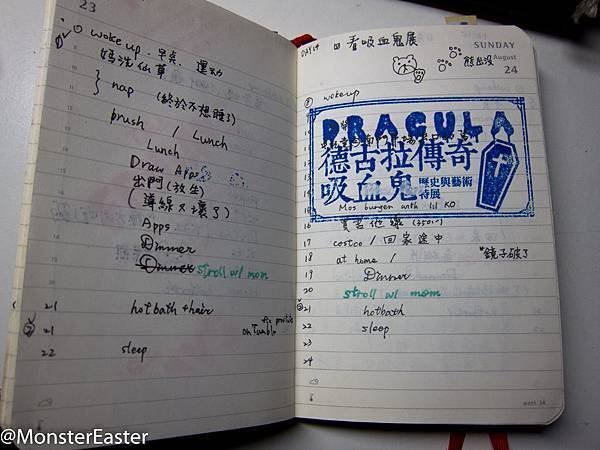 23
① woke up - 早桌, 運動
媽洗仙草
} nap (終於不想睡了)
brush / Lunch
Lunch
Draw Apps
出門(放生)
(導線又壞了)
Apps
Dinner
Dinner stroll w/ mom
21 hotbath + hair
② 21 on Tumblr
22 sleep
看吸血鬼展
熊出沒
SUNDAY
August
24
woke up
DRACULA
德古拉傳奇
吸血鬼 歷史與藝術
特展
Mos burger with lil KO
16
17 costco / 回家途中
18 at home / *鏡子破了
19 Dinner
20 stroll w/ mom
21 hotbath
22 sleep
23
24
week 34
@MonsterEaster